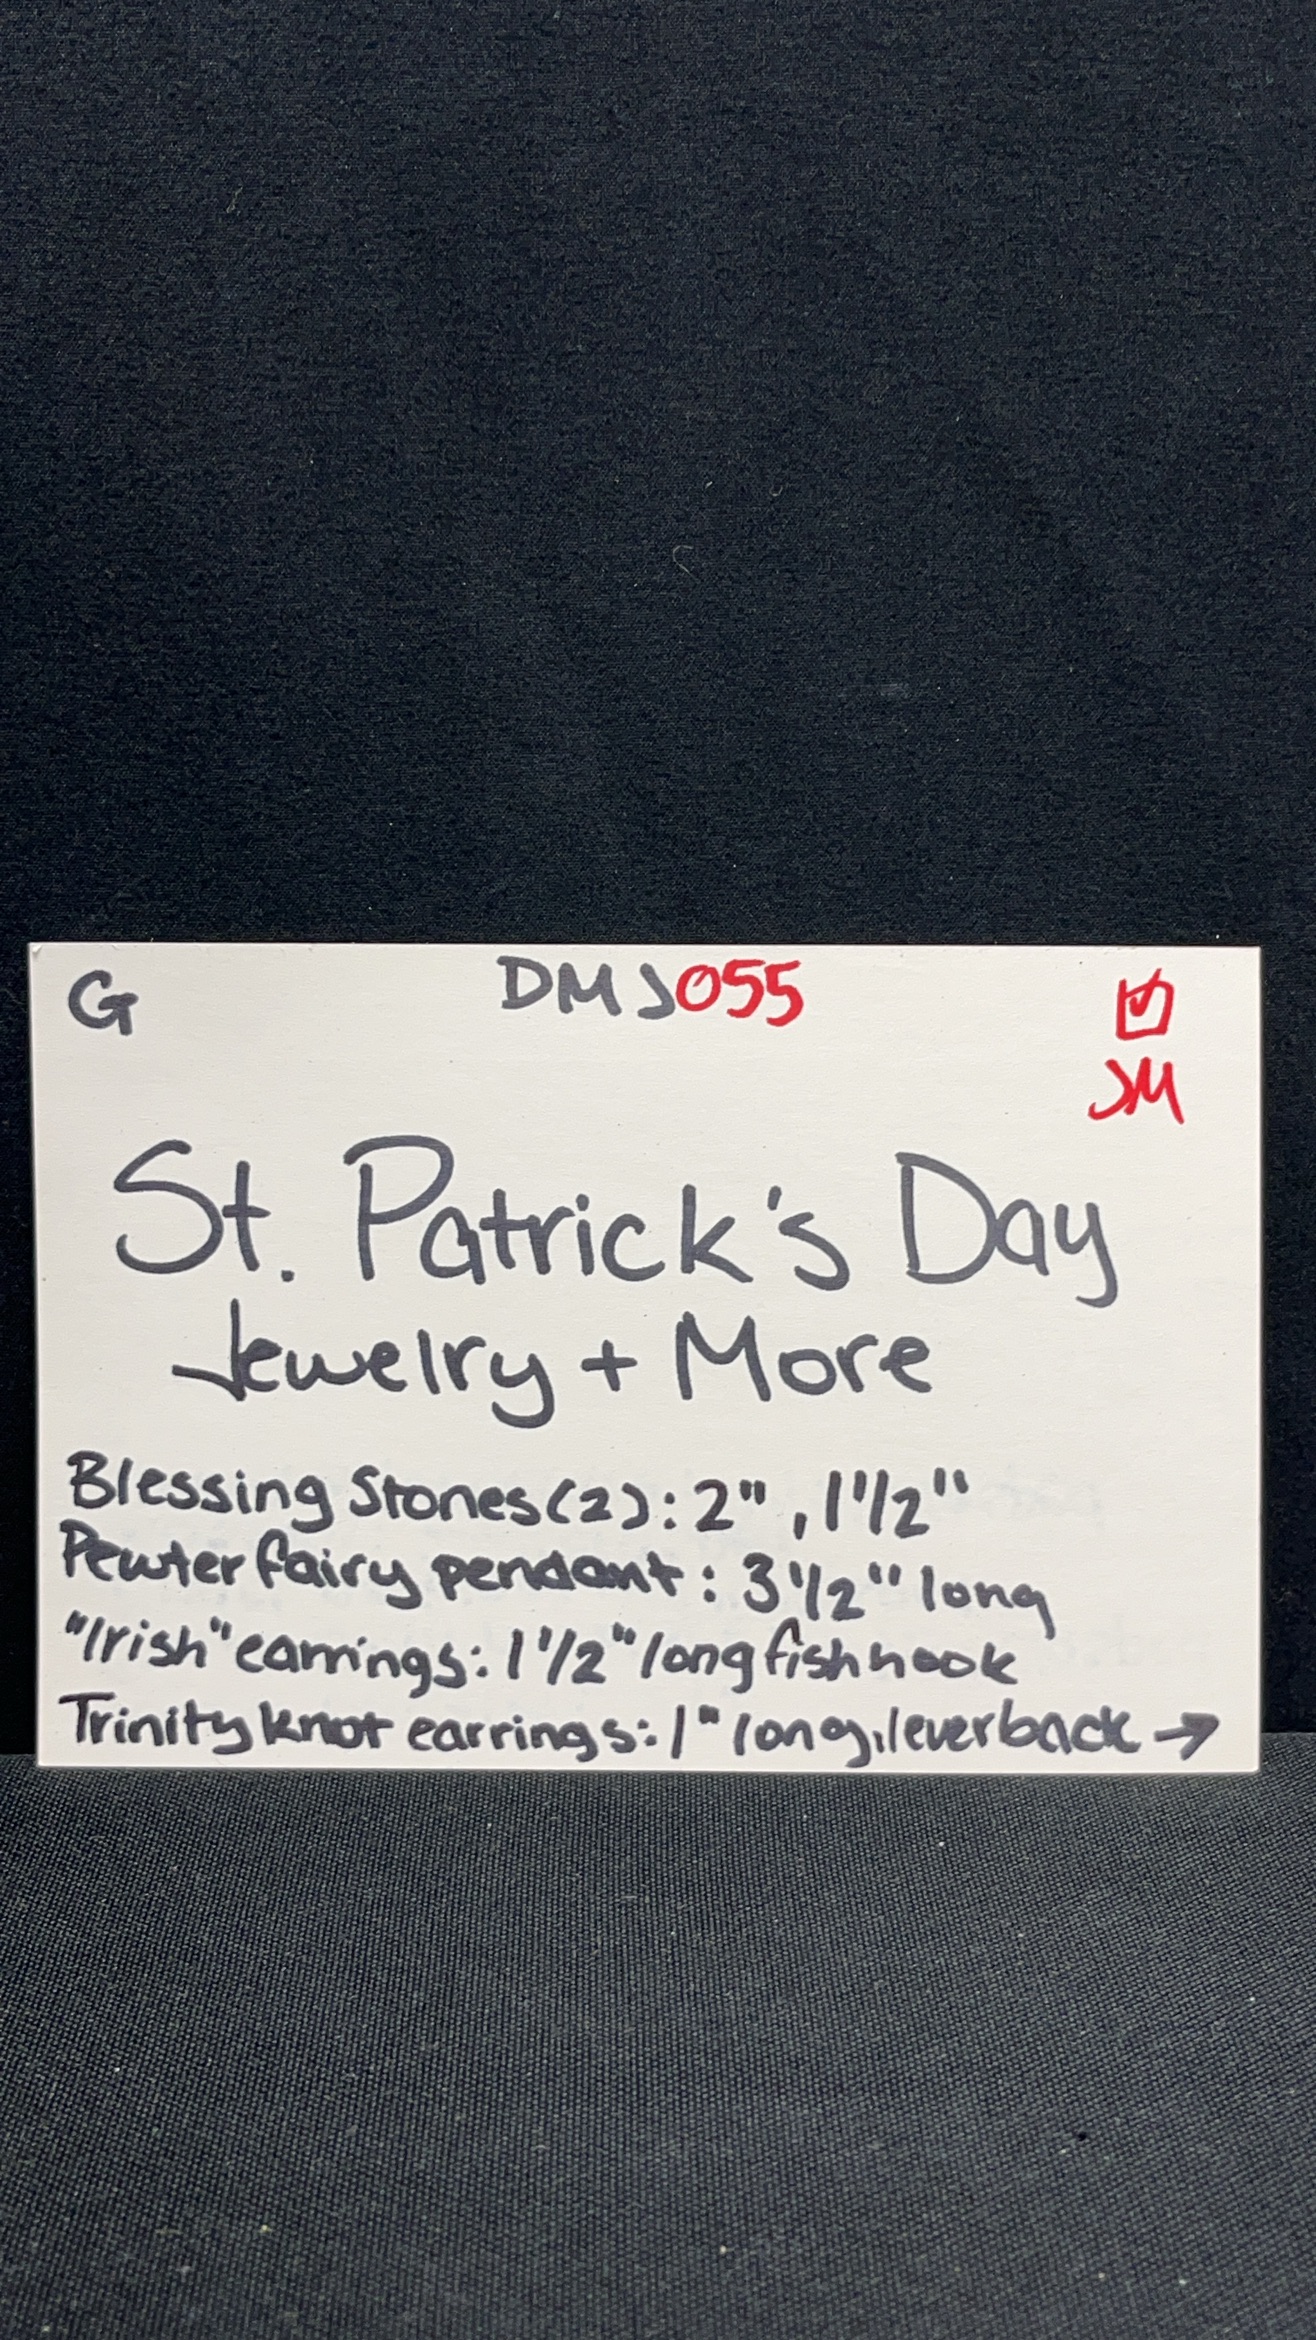 G DMJ055 ☑
JM
St. Patrick's Day
Jewelry + More
Blessing Stones (2): 2", 1 1/2"
Pewter fairy pendant: 3 1/2" long
"Irish" earrings: 1 1/2" long fish hook
Trinity knot earrings: 1" long, leverback →